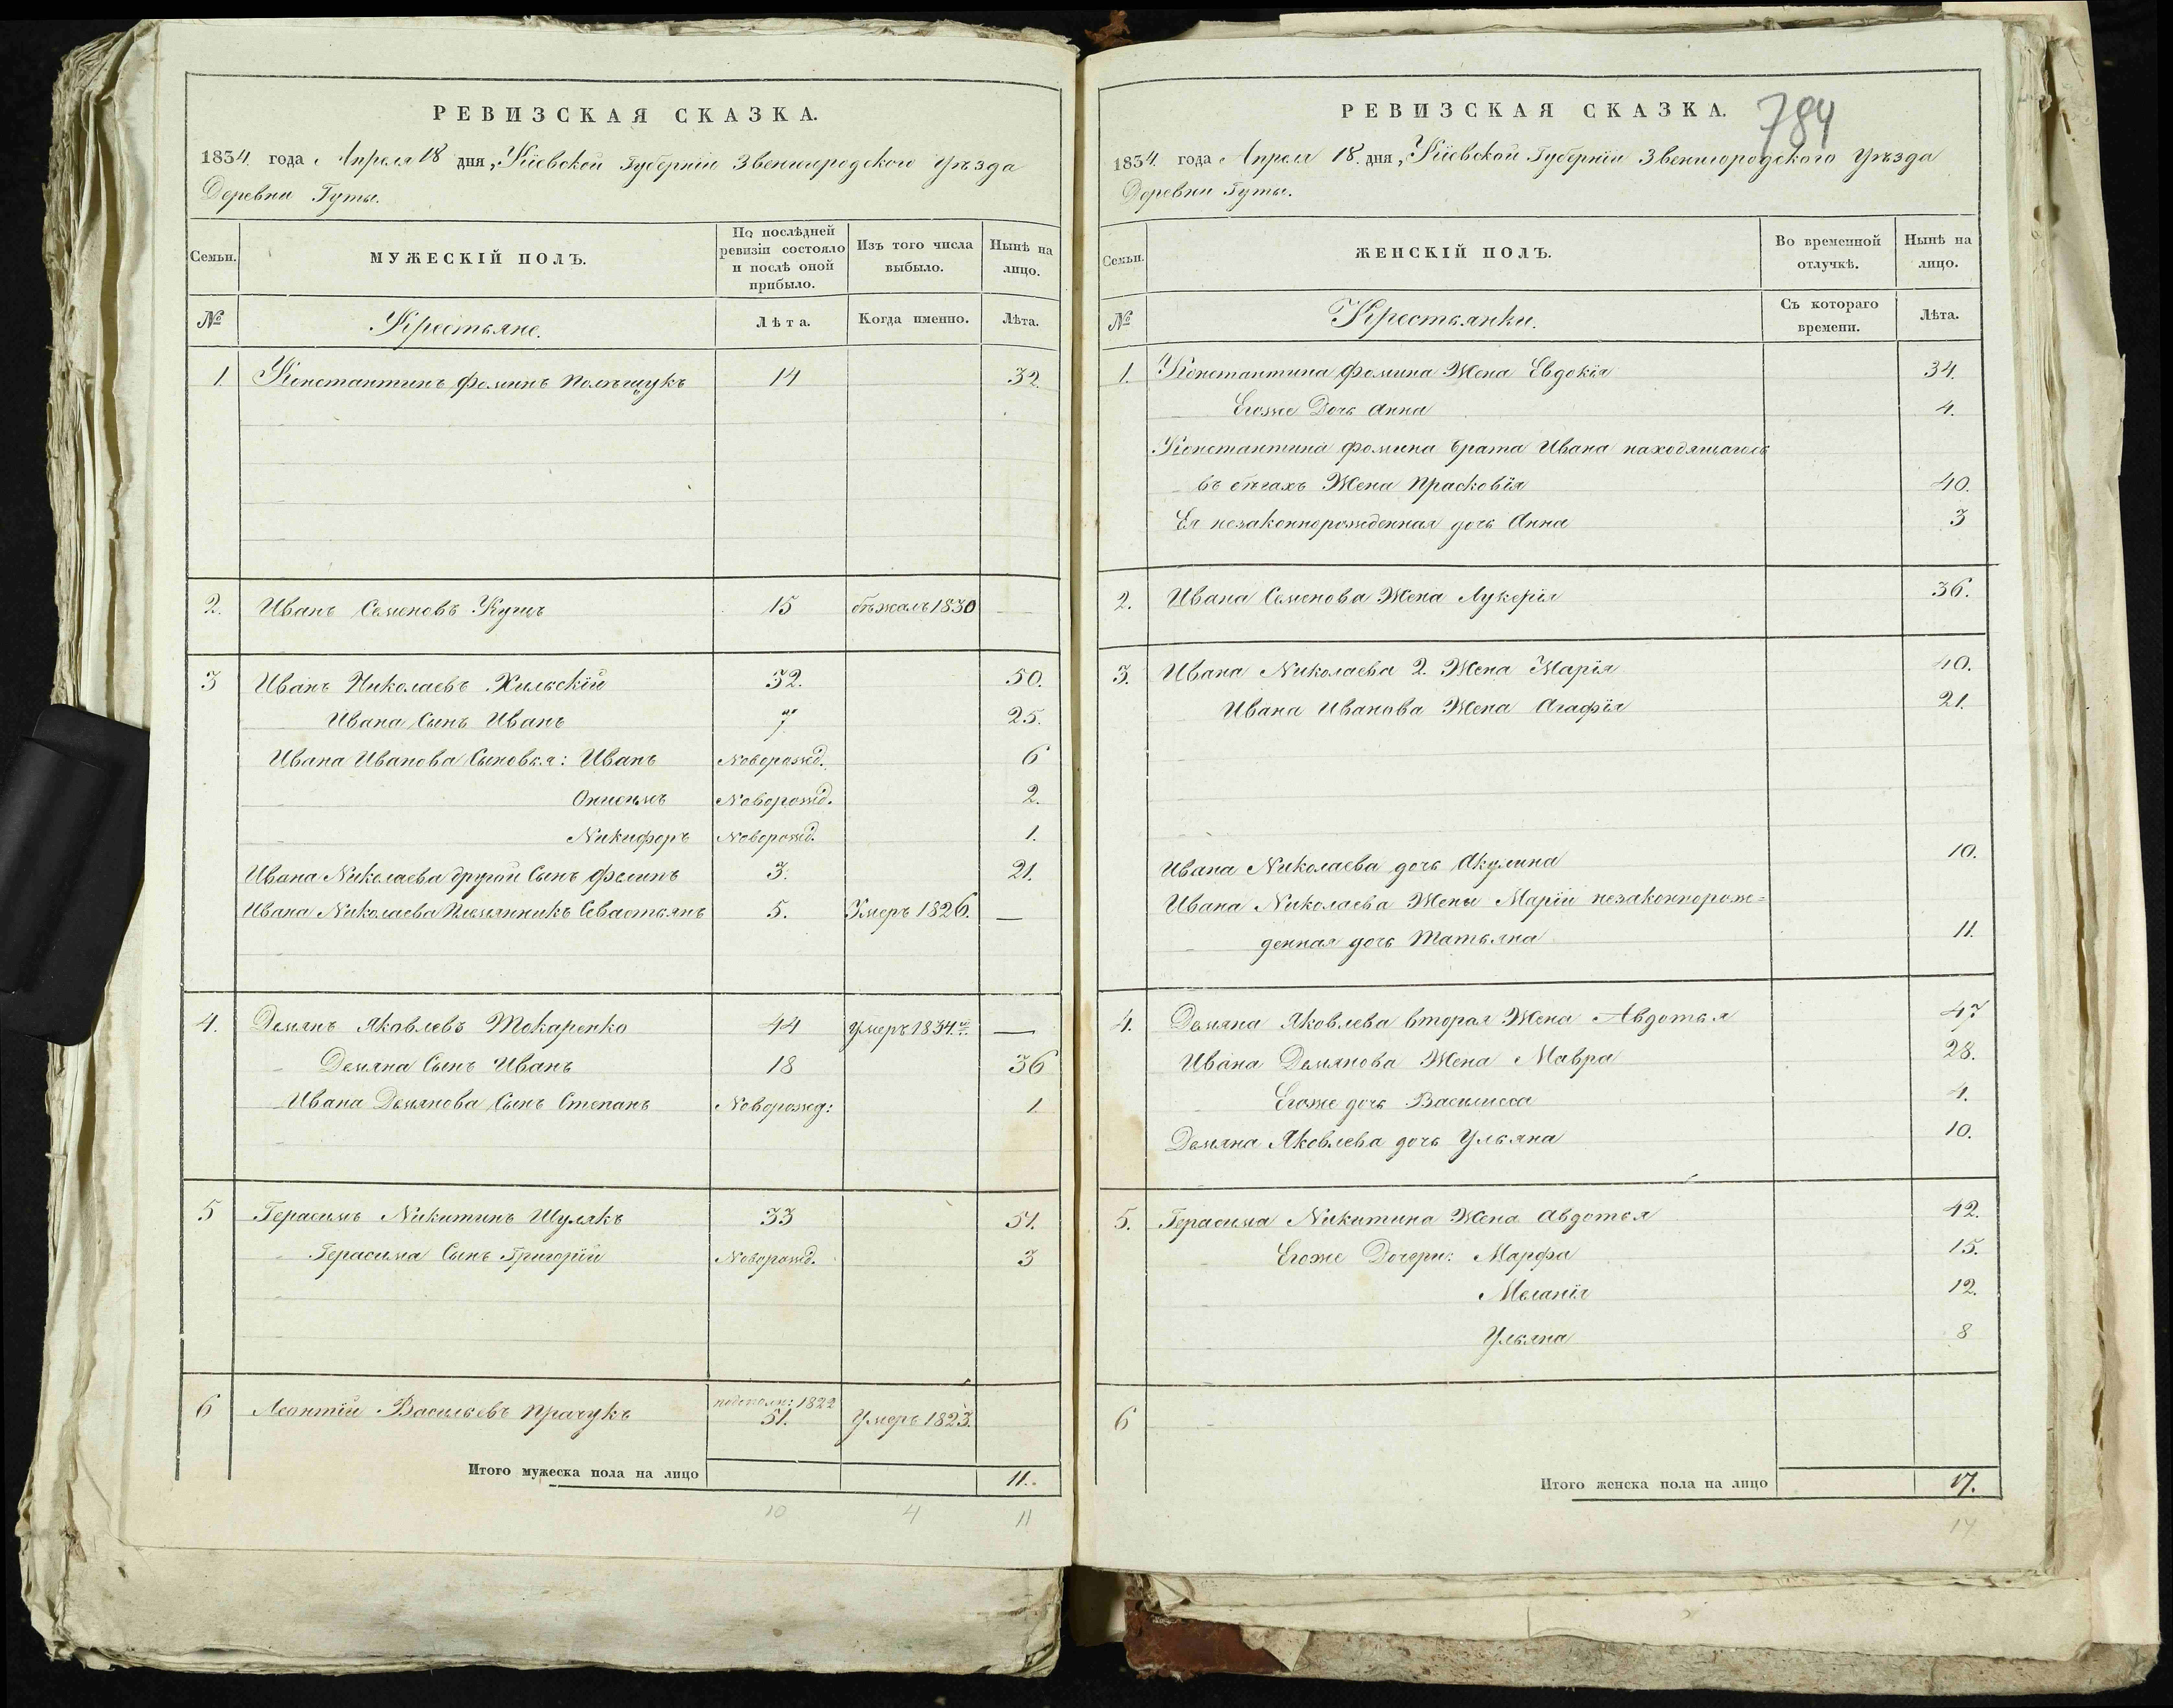 РЕВИЗСКАЯ СКАЗКА.
1834 года Апреля 18 дня, Кіевской Губерніи Звенигородского Уѣзда
Деревни Гуты.
Семьи. МУЖЕСКІЙ ПОЛЪ. По послѣдней ревизіи состояло и послѣ оной прибыло. Изъ того числа выбыло. Нынѣ на лицо.
№ Крестьяне. Лѣта. Когда именно. Лѣта.
1. Константинъ Фоминъ Полѣщукъ 14 32
2. Иванъ Семеновъ Кущъ 15 бѣжалъ 1830 —
3 Иванъ Николаевъ Хильскій 32. 50.
Ивана Сынъ Иванъ 7 25.
Ивана Иванова Сыновья: Иванъ Новорожд. 6
Онисимъ Новорожд. 2.
Никифоръ Новорожд. 1.
Ивана Николаева другой Сынъ Филипъ 3. 21.
Ивана Николаева Племянникъ Севастьянъ 5. Умеръ 1826. —
4. Демянъ Яковлевъ Токаренко 44 умеръ 1834. —
Демяна Сынъ Иванъ 18 36
Ивана Демянова Сынъ Степанъ Новорожд: 1
5 Герасимъ Никитинъ Шулякъ 33 51.
Герасима Сынъ Григорій Новорожд. 3
6 Леонтій Васильевъ Прачукъ 1822 51. Умеръ 1823.
Итого мужеска пола на лицо 11.
10 4 11
784
РЕВИЗСКАЯ СКАЗКА.
1834. года Апреля 18. дня, Кіевской Губерніи Звенигородского Уѣзда
Деревни Гуты.
Семьи. ЖЕНСКІЙ ПОЛЪ. Во временной отлучкѣ. Нынѣ на лицо.
№ Крестьянки. Съ котораго времени. Лѣта.
1. Константина Фомина Жена Евдокія 34.
Егоже Дочь Анна 4.
Константина Фомина брата Ивана находящагось
въ бѣгахъ Жена Прасковія 40.
Ея незаконнорожденная дочь Анна 3
2. Ивана Семенова Жена Лукерія 36.
3. Ивана Николаева 2. Жена Марія 40.
Ивана Иванова Жена Агафія 21.
Ивана Николаева дочь Акулина 10.
Ивана Николаева Жены Маріи незаконнорож=
денная дочь Татьяна 11.
4. Демяна Яковлева вторая Жена Авдотья 47
Ивана Демянова Жена Мавра 28.
Егоже дочь Василисса 4.
Демяна Яковлева дочь Ульяна 10.
5. Герасима Никитина Жена Авдотья 42.
Егоже Дочери: Марфа 15.
Меланія 12.
Ульяна 8
6
Итого женска пола на лицо 17.
17